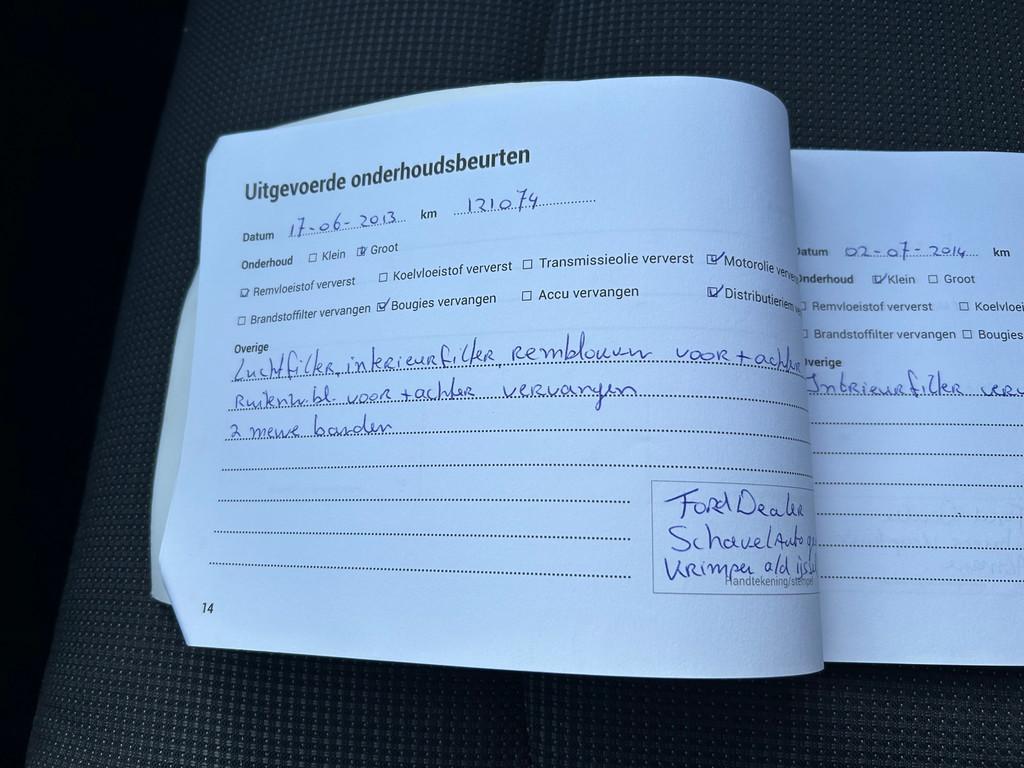 Uitgevoerde onderhoudsbeurten
Datum 17-06-2013 km 121074
Onderhoud ☐ Klein ☑ Groot
☑ Remvloeistof ververst ☐ Koelvloeistof ververst ☐ Transmissieolie ververst ☑ Motorolie
☐ Brandstoffilter vervangen ☑ Bougies vervangen ☐ Accu vervangen ☑ Distributieriem
Overige
Luchtfilter, interieurfilter, Remblokken voor + achter
Ruitenw.bl. voor + achter vervangen
2 nieuwe banden
Ford Dealer
Schavel Auto
Krimpen a/d
Handtekening/stempel
14
Datum 02-07-2014 km
Onderhoud ☑ Klein ☐ Groot
☐ Remvloeistof ververst ☐
☐ Brandstoffilter vervangen ☐ Bougies
Overige
Interieurfilter